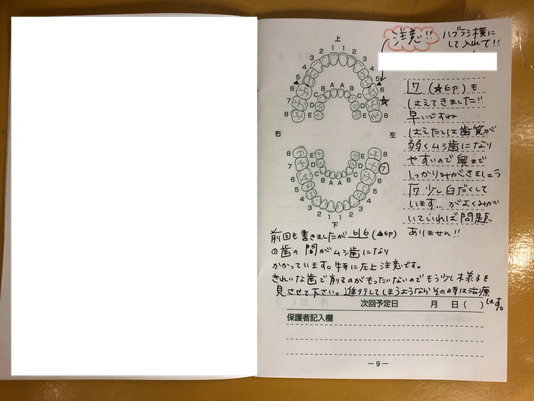 注意!! ハブラシ横に
して入れて!!
上
右
左
下
7(★印)も
はえてきました!!
早いですね
はえたては歯質が
弱くムシ歯になり
やすいので奥まで
しっかりみがきましょう
7少し白だくして
います。がよくみがい
ていれば問題
ありません!!
前回も書きましたが6|6(▲印)
の歯の間がムシ歯になり
かかっています。特に左上注意です。
きれいな歯で削るのがもったいないのでもう少し様子を
見させて下さい。進行してしまうようならその時は治療です。
次回予定日 月 日( )
保護者記入欄
−9−